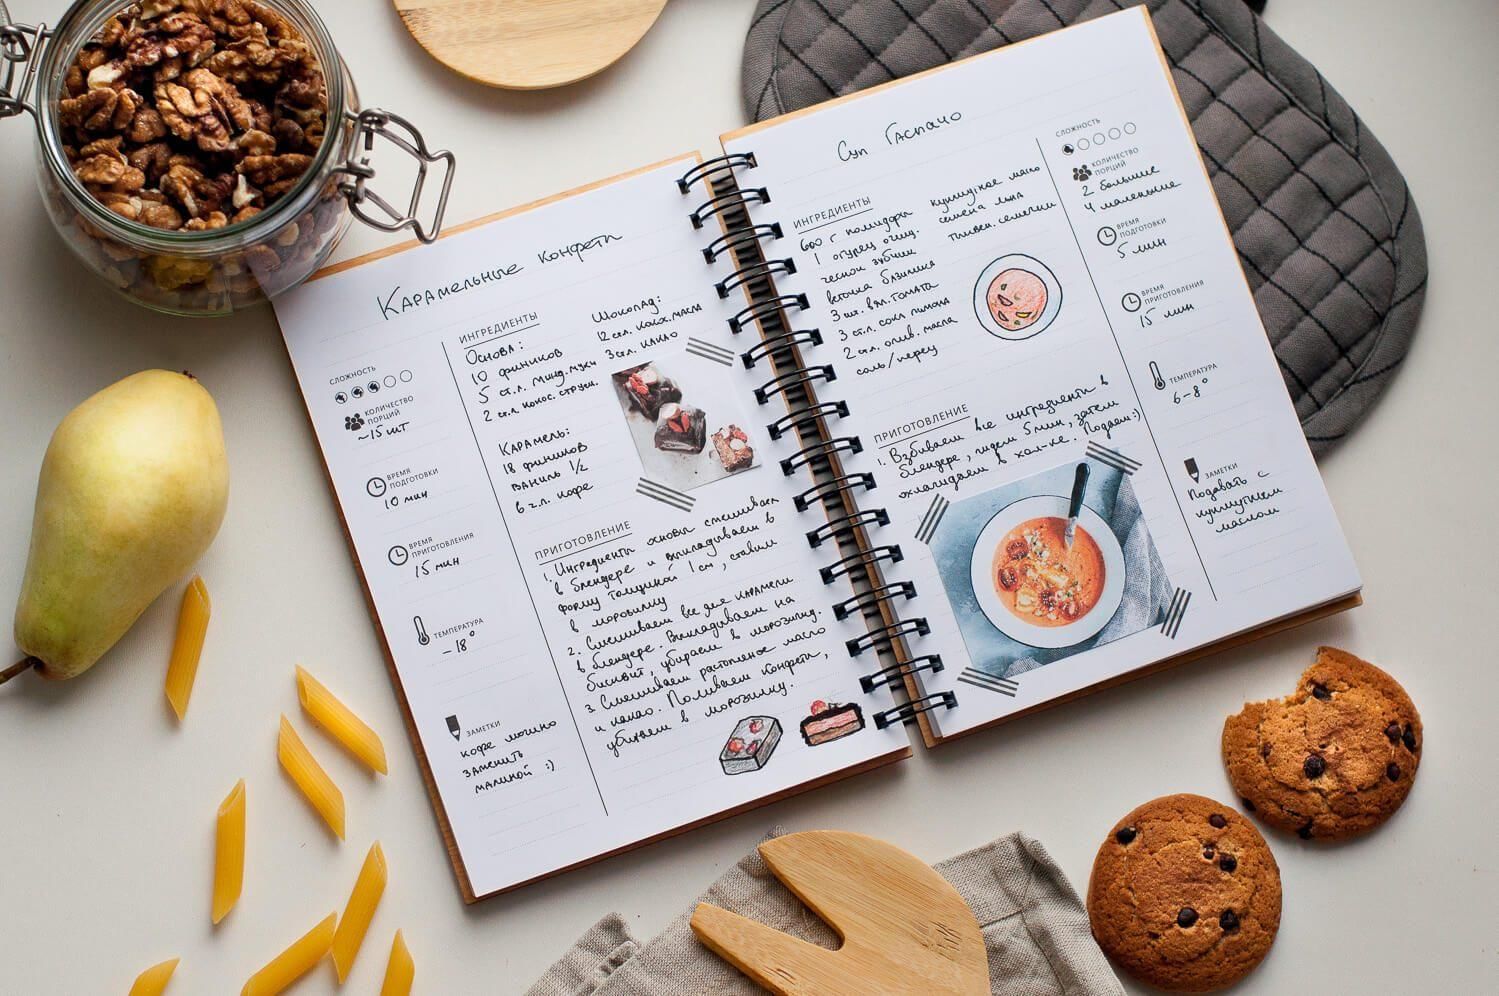 Карамельные конфеты
СЛОЖНОСТЬ
КОЛИЧЕСТВО
ПОРЦИЙ
~15 шт
ВРЕМЯ
ПОДГОТОВКИ
10 мин
ВРЕМЯ
ПРИГОТОВЛЕНИЯ
15 мин
ТЕМПЕРАТУРА
-18°
ЗАМЕТКИ
кофе можно
заменить
малиной :)
ИНГРЕДИЕНТЫ
Основа:
10 фиников
5 ст.л. минд. муки
2 ст.л. кокос. струж.
Шоколад:
12 ст.л. кокос. масла
3 ст.л. какао
Карамель:
18 фиников
ваниль 1/2
6 г.л. кофе
ПРИГОТОВЛЕНИЕ
1. Ингредиенты основы смешиваем
в блендере и выкладываем в
форму толщиной 1 см, ставим
в морозилку
2. Смешиваем все для карамели
в блендере. Выкладываем на
бисквит, убираем в морозилку.
3. Смешиваем растопленое масло
и какао. Поливаем конфеты,
убираем в морозилку.
Суп Гаспачо
ИНГРЕДИЕНТЫ
600 г помидоры
1 огурец очищ.
чеснок зубчик
веточка базилика
3 шт. вял. томата
3 ст.л. сока лимона
2 ст.л. олив. масла
соль/перец
кунжутное масло
семена льна
тыквен. семечки
ПРИГОТОВЛЕНИЕ
1. Взбиваем все ингредиенты в
блендере, ждем 5 мин, затем
охлаждаем в хол-ке. Подаем :)
СЛОЖНОСТЬ
КОЛИЧЕСТВО
ПОРЦИЙ
2 большие
4 маленькие
ВРЕМЯ
ПОДГОТОВКИ
5 мин
ВРЕМЯ
ПРИГОТОВЛЕНИЯ
15 мин
ТЕМПЕРАТУРА
6-8°
ЗАМЕТКИ
Подавать с
кунжутным
маслом